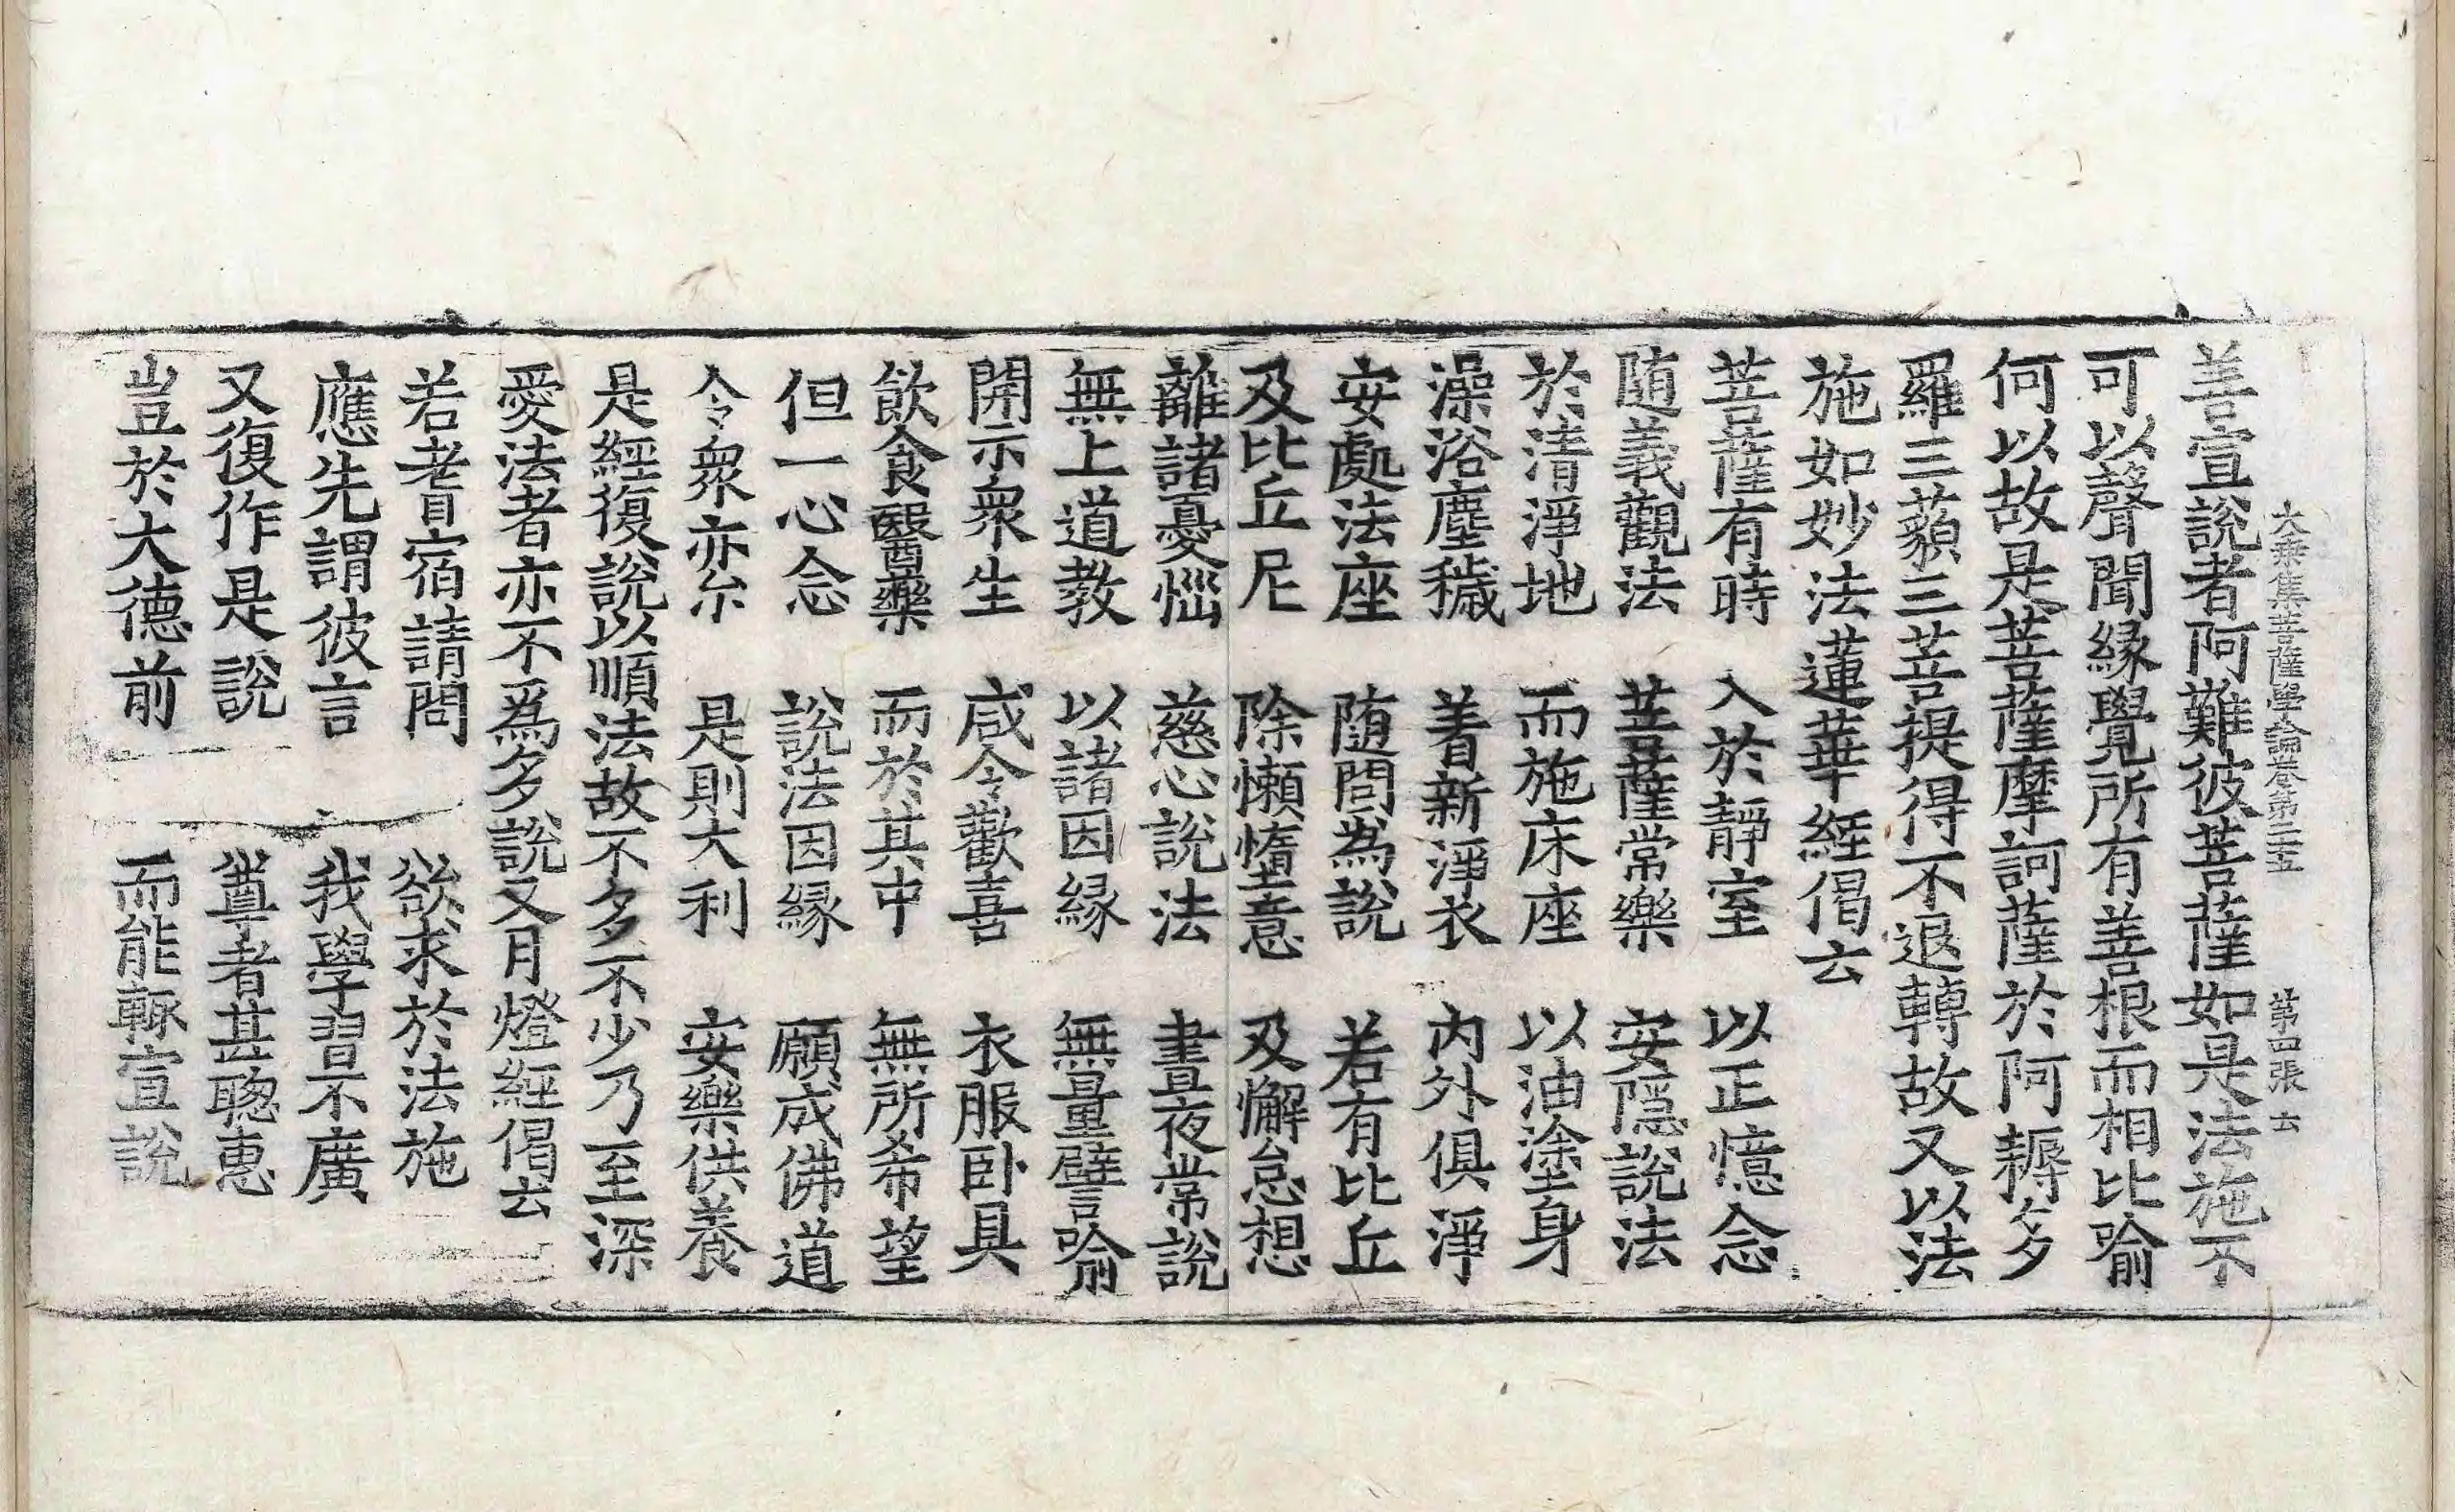 大乘集菩薩學論卷第二十五　第四張　去
善宣說者阿難彼菩薩如是法施不
可以聲聞緣覺所有善根而相比喻
何以故是菩薩摩訶薩於阿耨多
羅三藐三菩提得不退轉故又以法
施如妙法蓮華經偈云
菩薩有時　入於靜室　以正憶念
随義觀法　菩薩常樂　安隱說法
於清淨地　而施床座　以油塗身
澡浴塵穢　著新淨衣　內外俱淨
安處法座　随問為說　若有比丘
及比丘尼　除懶惰意　及懈怠想
離諸憂惱　慈心說法　晝夜常說
無上道教　以諸因緣　無量譬喻
開示衆生　咸令歡喜　衣服卧具
飲食醫藥　而於其中　無所希望
但一心念　說法因緣　願成佛道
令衆亦尒　是則大利　安樂供養
是經復說以順法故不多不少乃至深
愛法者亦不爲多說又月燈經偈云
若耆宿請問　欲求於法施
應先謂彼言　我學習不廣
又復作是說　尊者甚聰惠
豈於大德前　而能輒宣說